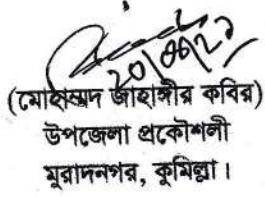 (মোহাম্মদ জাহাঙ্গীর কবির)
উপজেলা প্রকৌশলী
মুরাদনগর, কুমিল্লা।